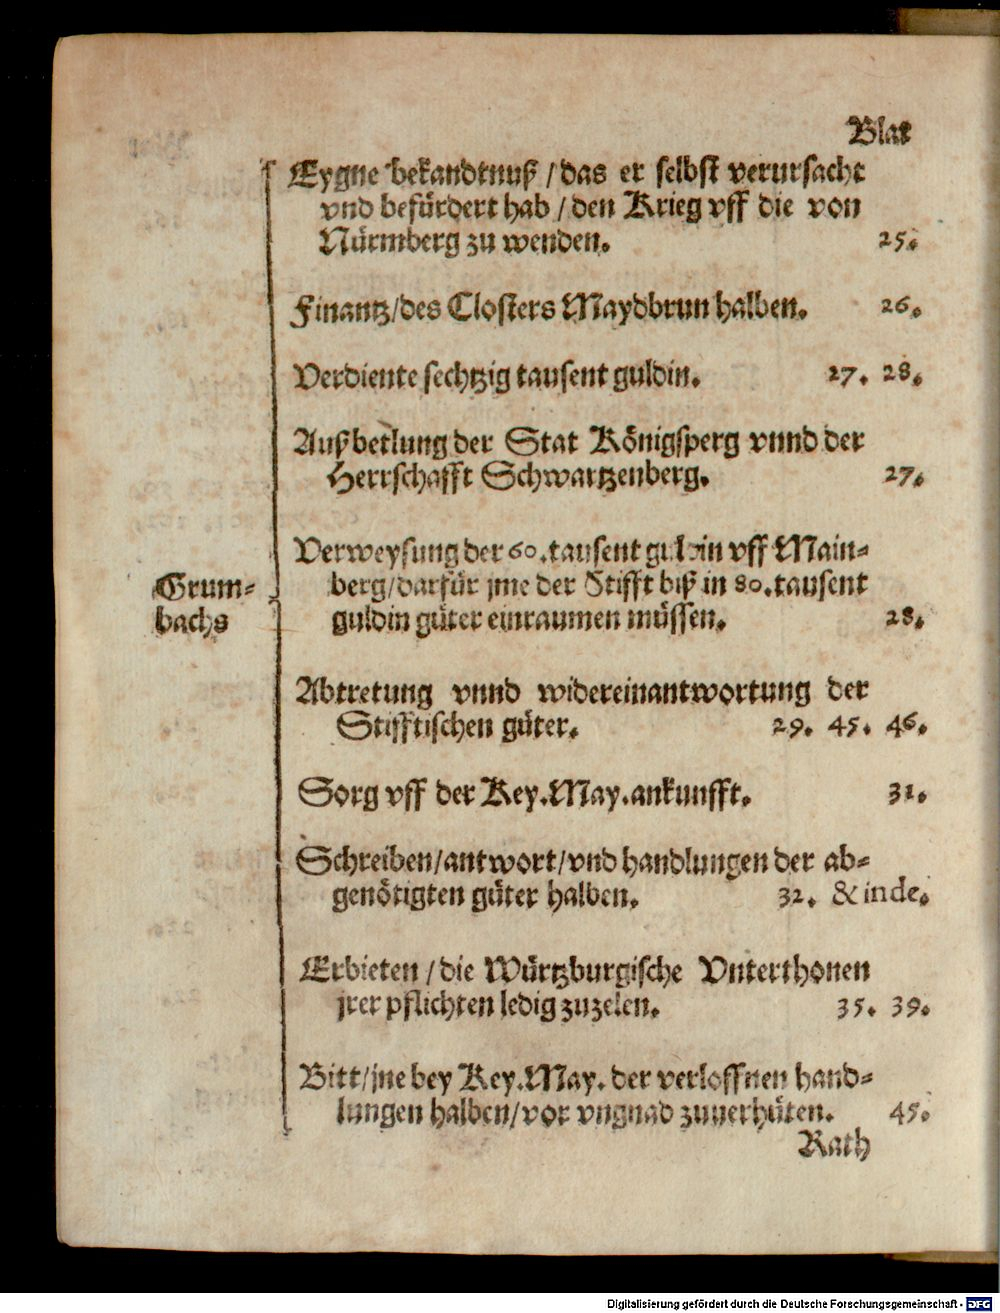 Blat
Eygne bekandtnuß / das er selbst verursacht
vnd befürdert hab / den Krieg vff die von
Nürmberg zu wenden. 25.
Finantz/des Closters Maydbrun halben. 26.
Verdiente sechtzig tausent guldin. 27. 28.
Außbetlung der Stat Königsperg vnnd der
Herrschafft Schwartzenberg. 27.
Verweysung der 60.tausent guldin vff Main-
berg/darfür jme der Stifft biß in 80.tausent
guldin güter einraumen müssen. 28.
Grum-
bachs
Abtretung vnnd widereinantwortung der
Stifftischen güter. 29. 45. 46.
Sorg vff der Key.May.ankunfft. 31.
Schreiben/antwort/vnd handlungen der ab-
genötigten güter halben. 32. & inde.
Erbieten / die Würtzburgische Vnterthonen
jrer pflichten ledig zuzelen. 35. 39.
Bitt/jne bey Key.May. der verloffnen hand-
lungen halben/vor vngnad zuuerhüten. 45.
Rath
Digitalisierung gefördert durch die Deutsche Forschungsgemeinschaft - DFG